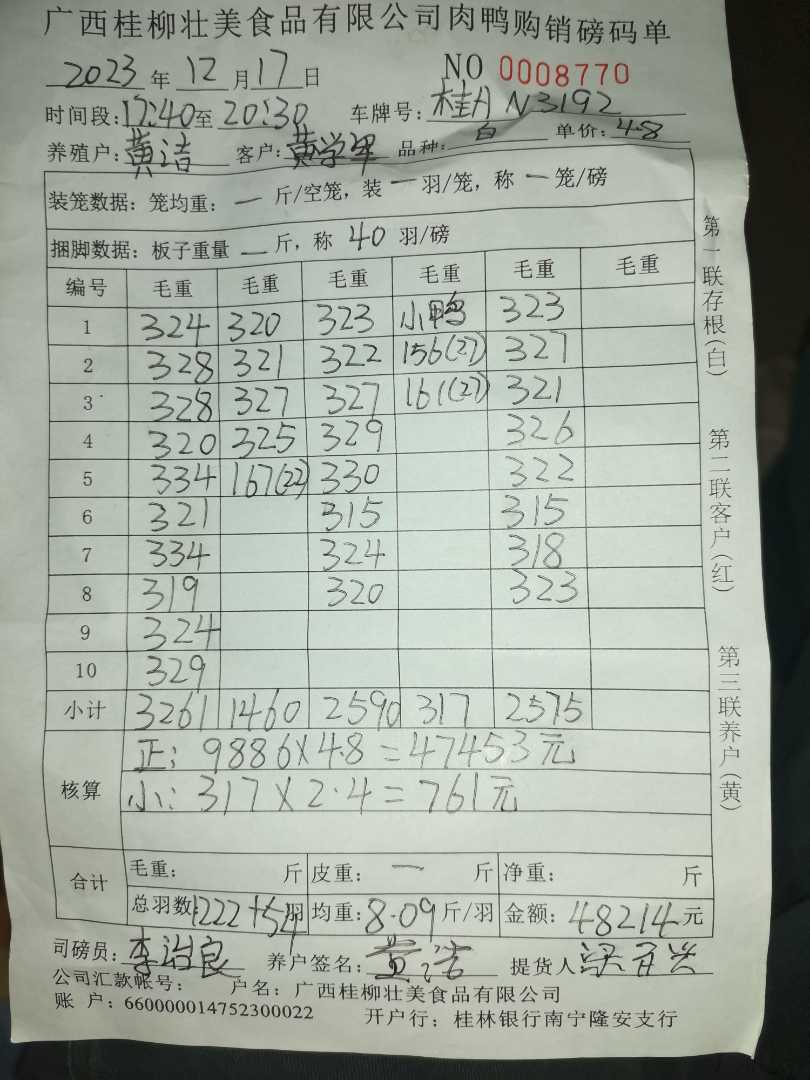 广西桂柳壮美食品有限公司肉鸭购销磅码单
2023年12月17日 NO 0008770
时间段:17:40至20:30 车牌号:桂A N3192
养殖户:黄洁 客户:黄学军 品种:白 单价:4.8
装笼数据:笼均重:一斤/空笼,装一羽/笼,称一笼/磅
捆脚数据:板子重量一斤,称40羽/磅
编号 毛重 毛重 毛重 毛重 毛重 毛重
1 324 320 323 小鸭 323
2 328 321 322 156(27) 327
3 328 327 327 161(27) 321
4 320 325 329 326
5 334 167(22) 330 322
6 321 315 315
7 334 324 318
8 319 320 323
9 324
10 329
小计 3261 1460 2590 317 2575
核算
正:9886×4.8=47453元
小:317×2.4=761元
合计 毛重: 斤 皮重:一斤 净重: 斤
总羽数1222+54羽 均重:8.09斤/羽 金额:48214元
司磅员:李治良 养户签名:黄洁 提货人
公司汇款帐号: 户名:广西桂柳壮美食品有限公司
账 户:660000014752300022 开户行:桂林银行南宁隆安支行
第一联存根(白)
第二联客户(红)
第三联养户(黄)